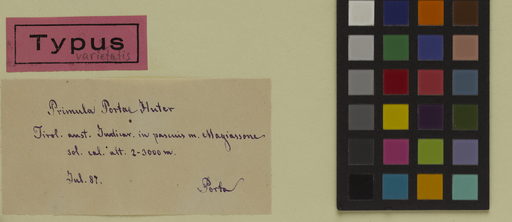 Typus
varietatis
Primula Portae Huter
Tirol. aust. Judicar. in pascuis m. Magiassone
sol. cal. alt. 2-3000 m.
Jul. 87.
Porta